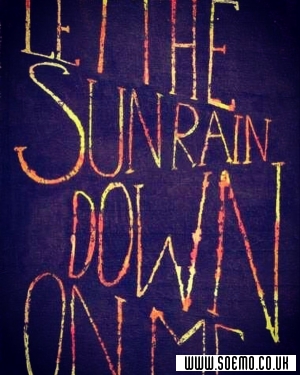 LET THE
SUN RAIN
DOWN
ON ME
WWW.SOEMO.CO.UK